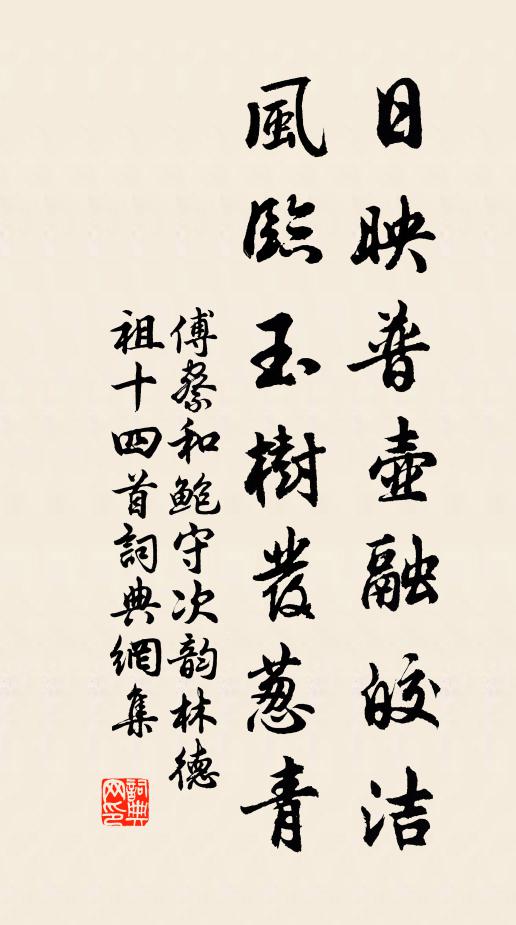 日映普壺融皎洁
風臨玉樹發蔥青
傅察和鮑守次韵林德
祖十四首詞典網集
詞典网印